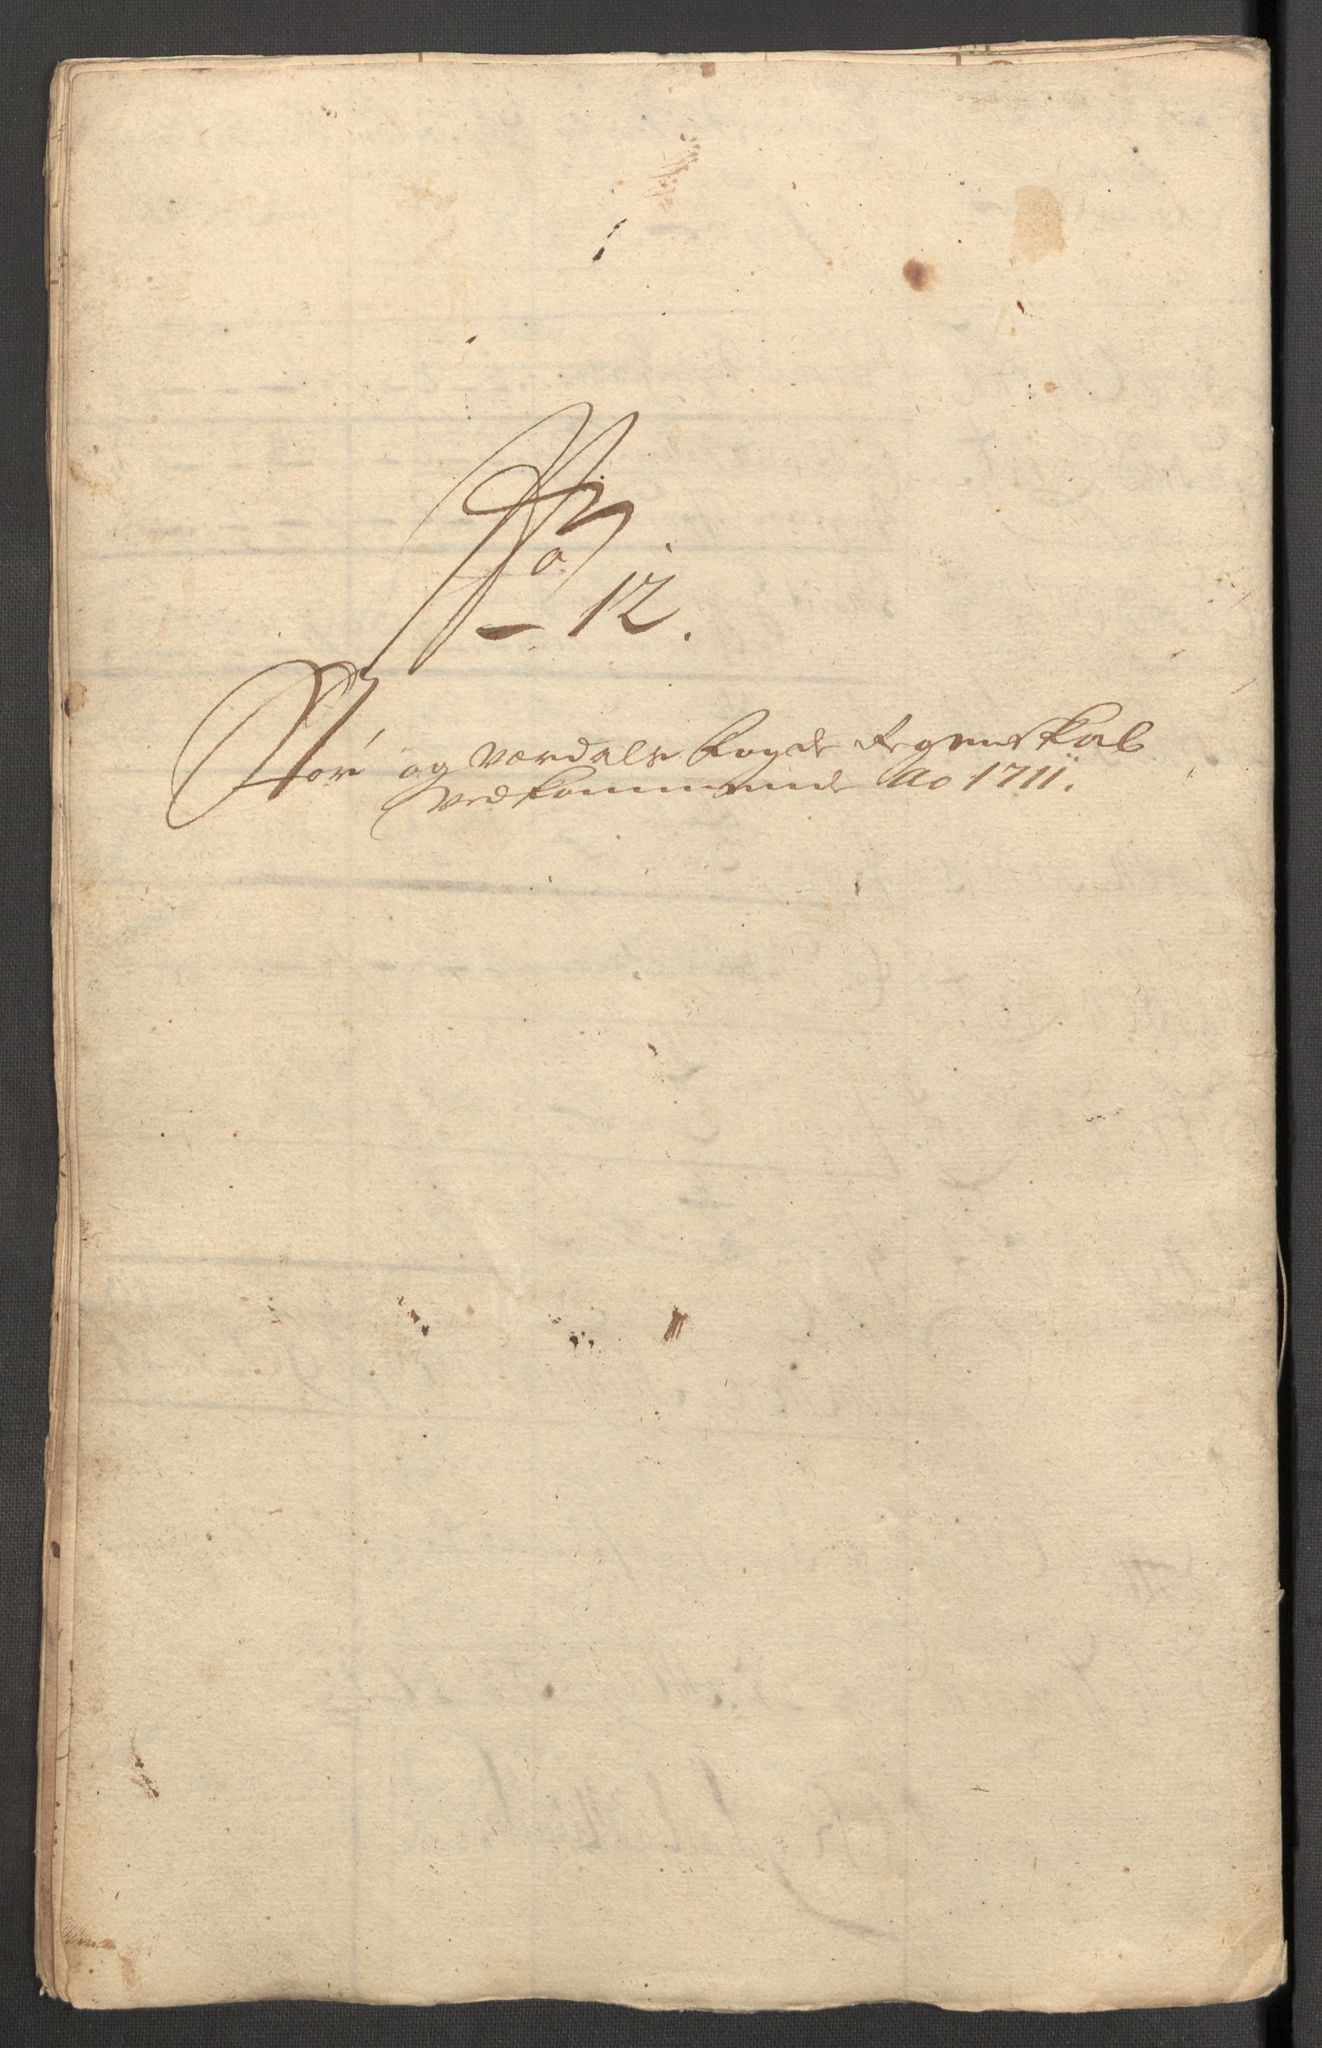 No
12.
Stør og Værdals Fogde Regenskab
vedkommende Ao 1711.